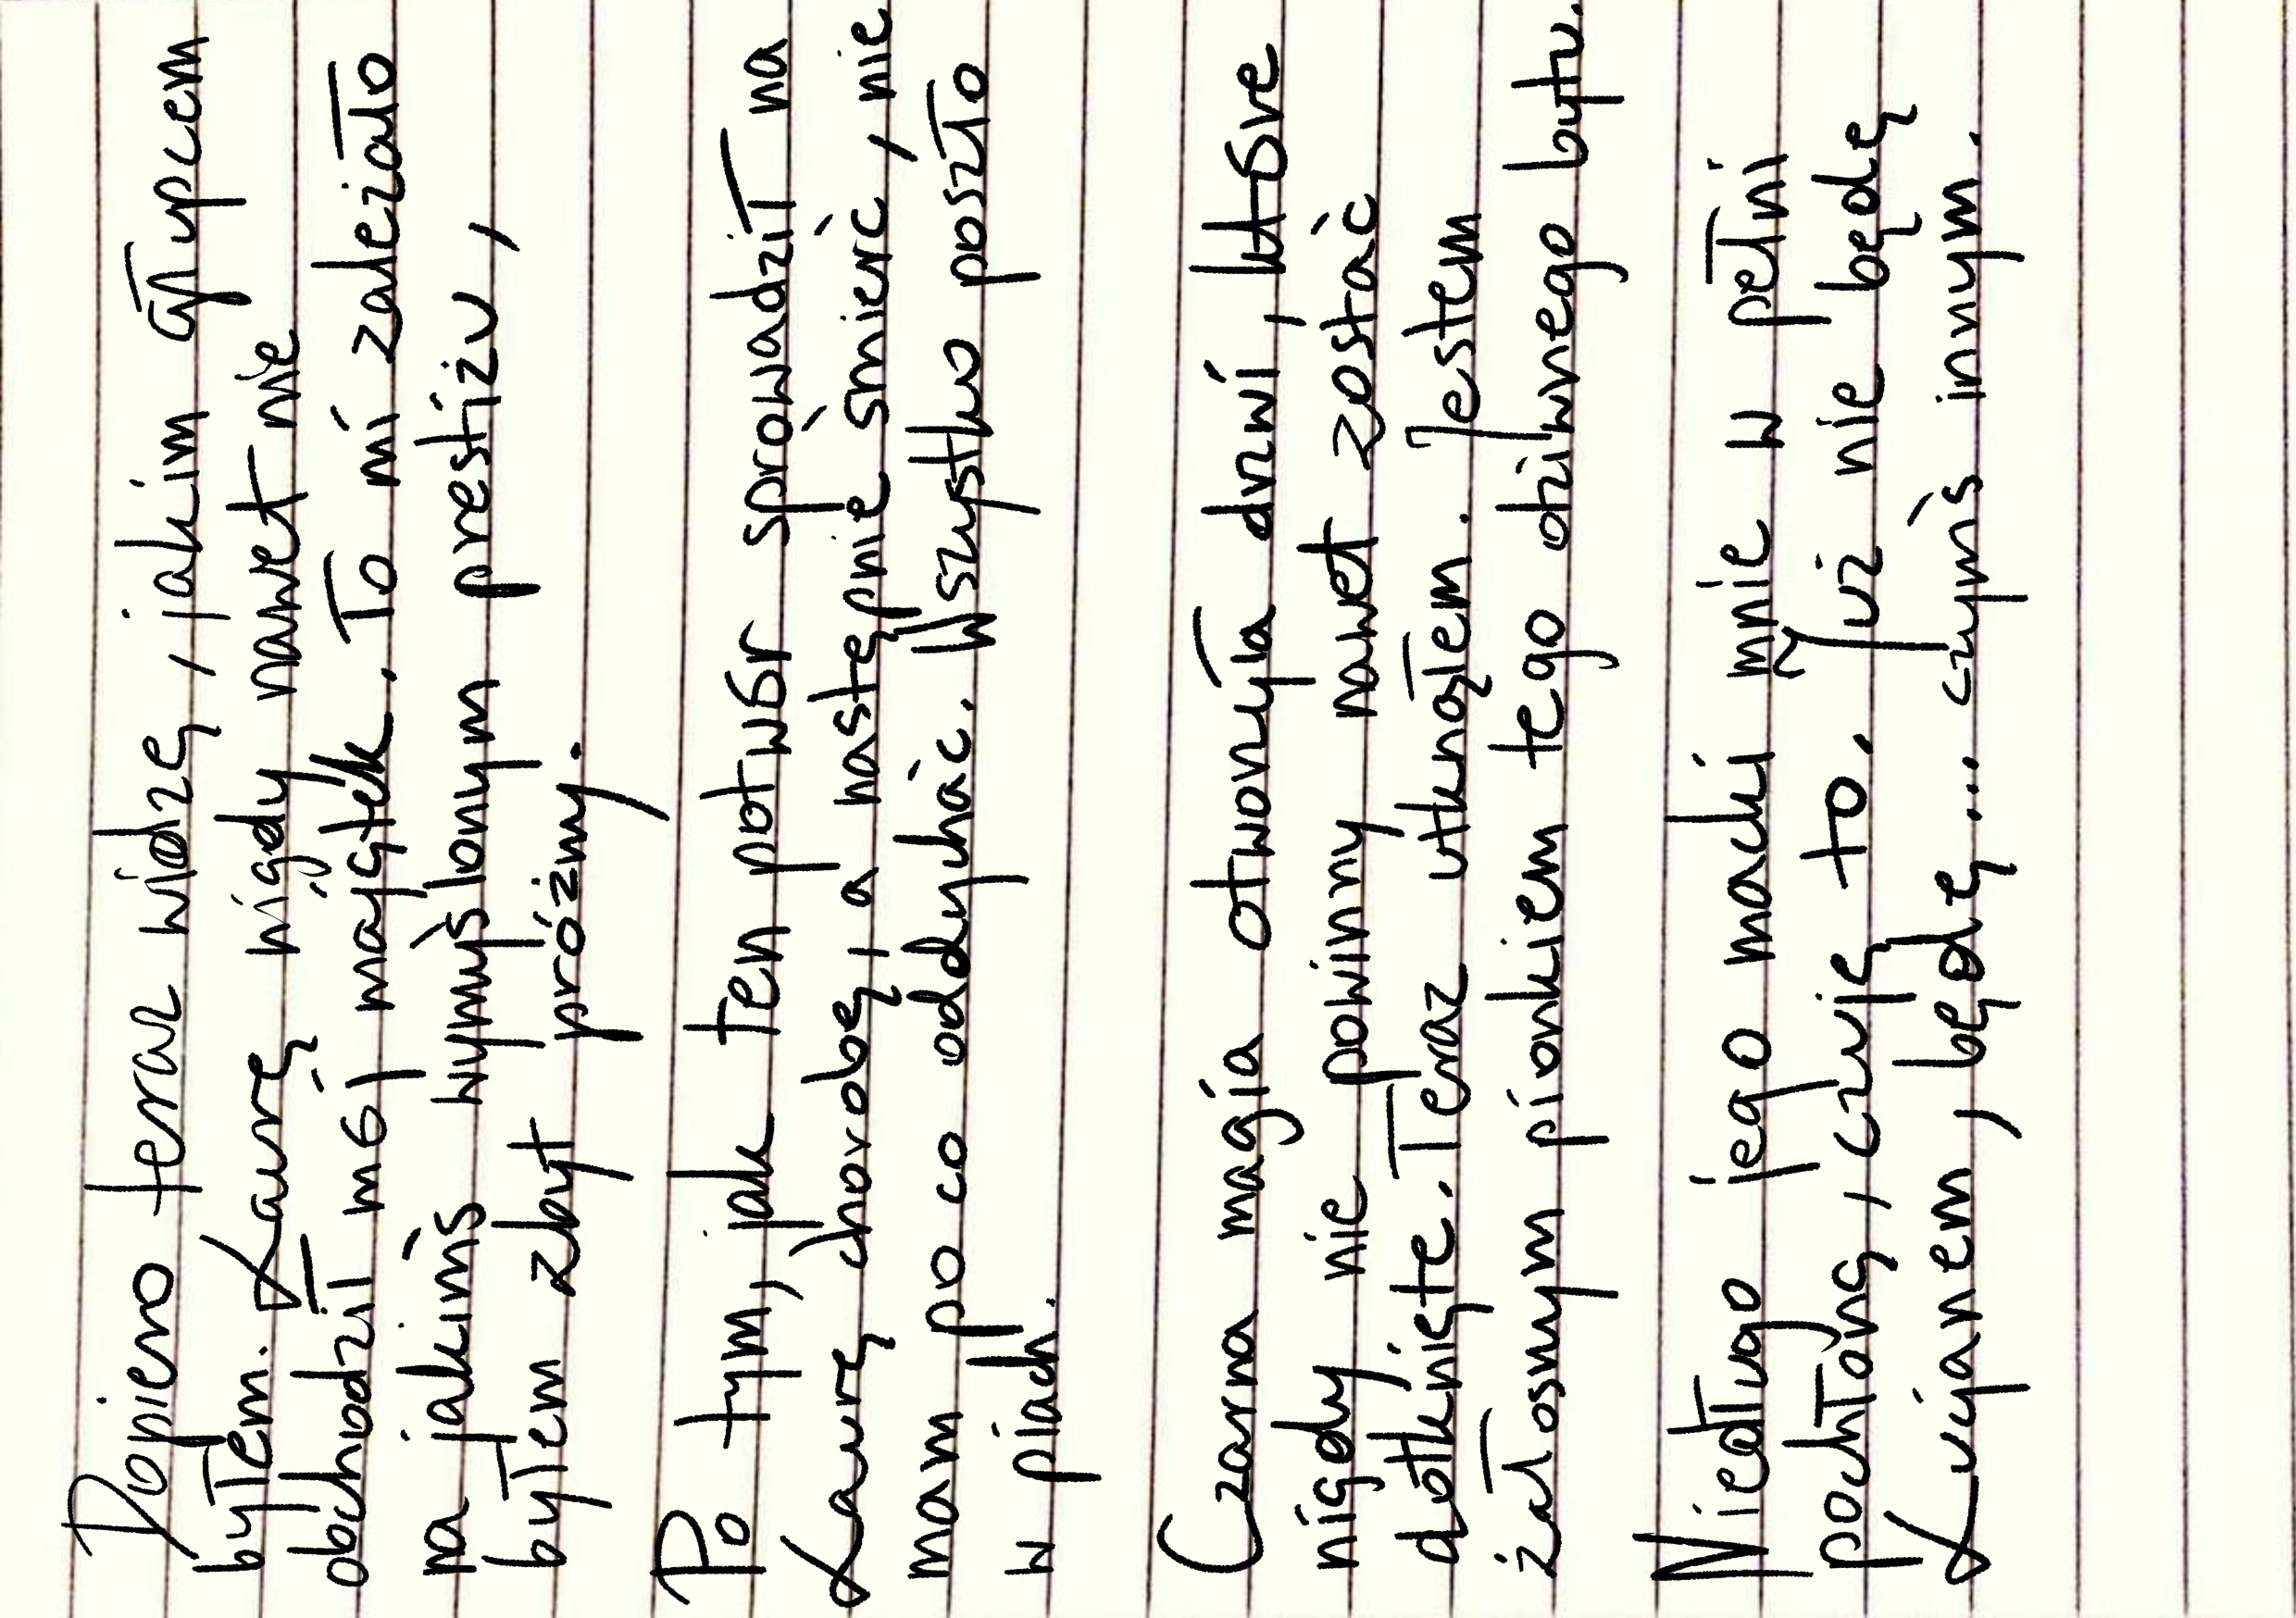 Dopiero teraz widzę, jakim głupcem
byłem. Laurę nigdy nawet nie
obchodził mój majątek. To mi zależało
na jakimś wymyślonym prestiżu,
byłem zbyt próżny.
Po tym, jak ten potwór sprowadził na
Laurę chorobę, a następnie śmierć, nie
mam po co oddychać. Wszystko poszło
w piach.
Czarna magia otworzyła drzwi, które
nigdy nie powinny nawet zostać
dotknięte. Teraz utknąłem. Jestem
żałosnym pionkiem tego dziwnego bytu.
Niedługo jego macki mnie w pełni
pochłoną, czuję to. Już nie będę
Lucjanem, będę... czymś innym.